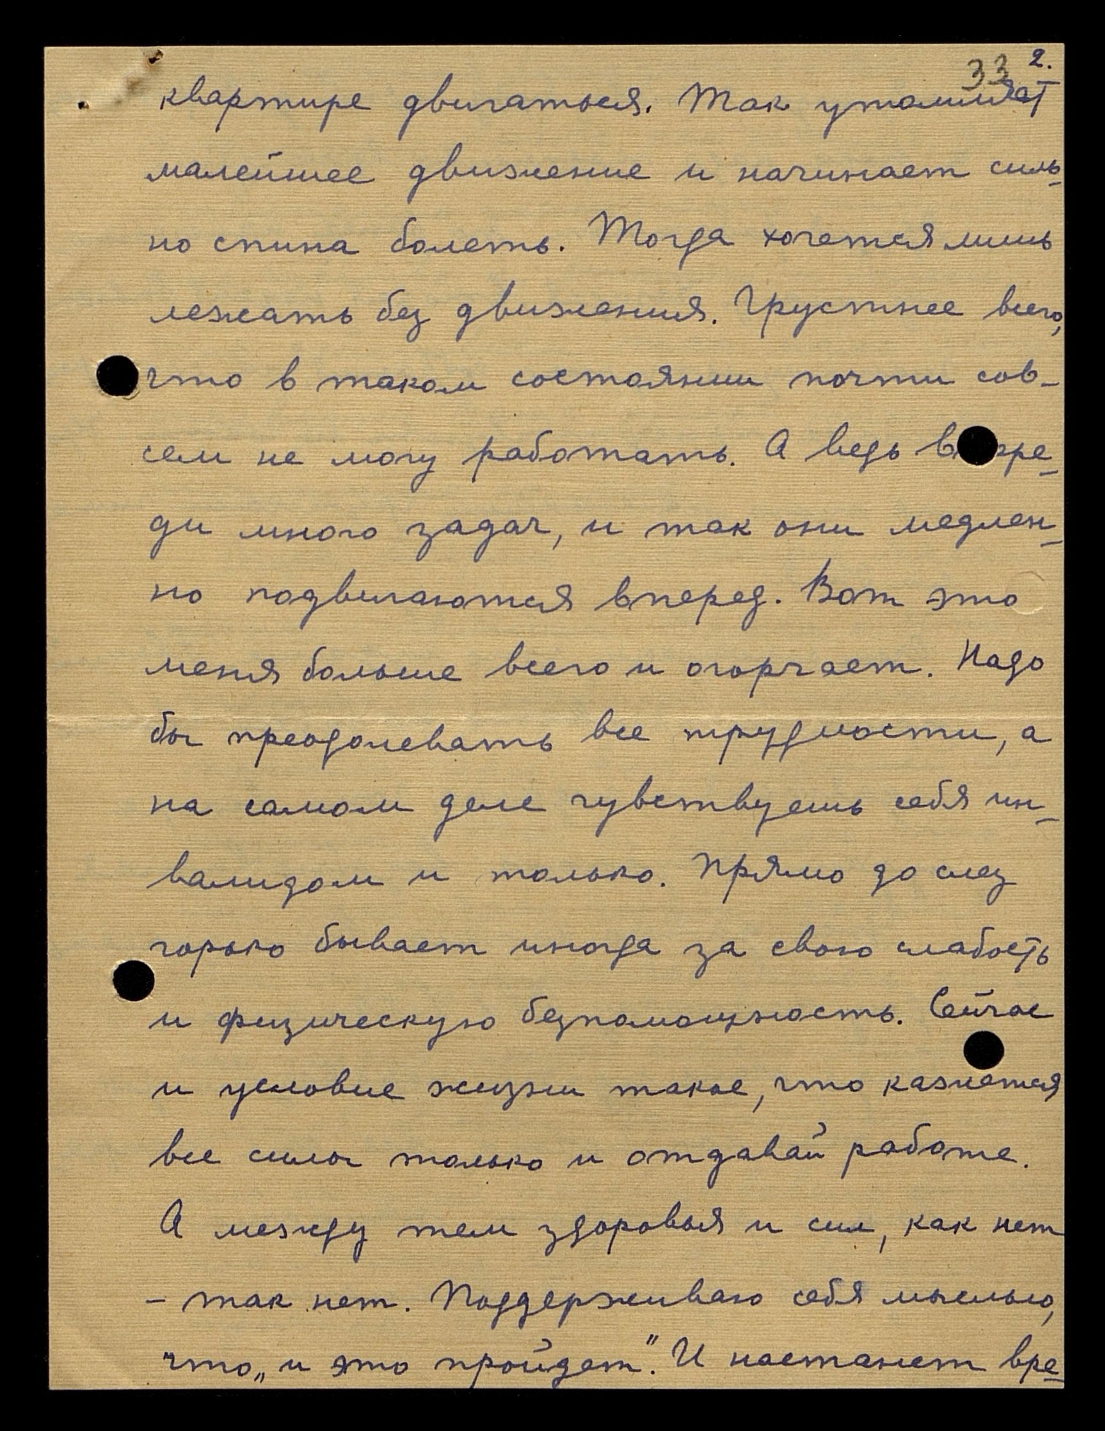 33 2.
квартире двигаться. Так утомляет
малейшее движение и начинает силь-
но спина болеть. Тогда хочется лишь
лежать без движения. Грустнее всего,
что в таком состоянии почти сов-
сем не могу работать. А ведь впере-
ди много задач, и так они медлен-
но подвигаются вперед. Вот это
меня больше всего и огорчает. Надо
бы преодолевать все трудности, а
на самом деле чувствуешь себя ин-
валидом и только. Прямо до слез
горько бывает иногда за свою слабость
и физическую безпомощность. Сейчас
и условие жизни такое, что кажется
все силы только и отдавай работе.
А между тем здоровья и сил, как нет
– так нет. Поддерживаю себя мыслью,
что „и это пройдет". И настанет вре-